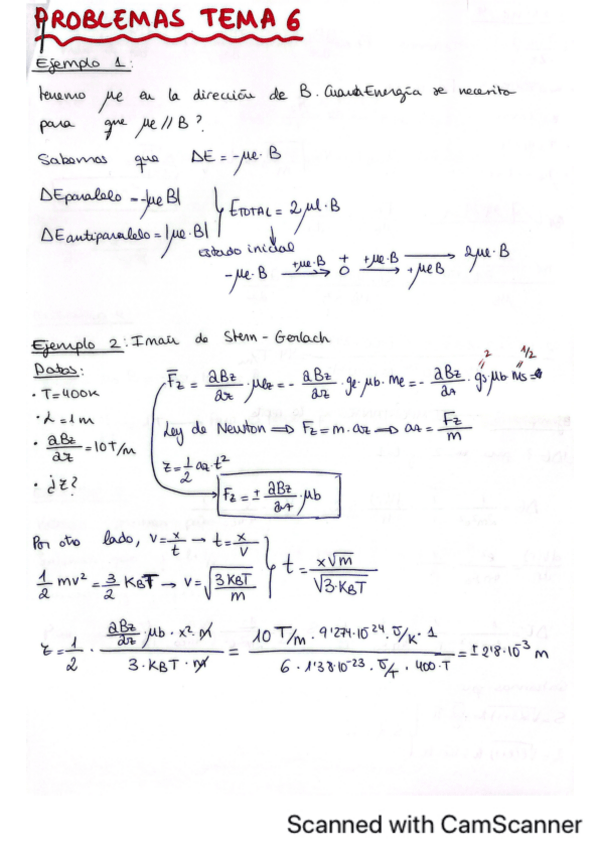 PROBLEMAS TEMA 6
Ejemplo 1:
tenemos μe en la dirección de B. Cuanta Energía se necesita
para que μe // B?
Sabemos que ΔE = -μe · B
ΔEparalelo = -|μe B|
ΔEantiparalelo = |μe · B|
ETOTAL = 2μe · B
estado inicial
-μe·B +μe·B → 0 +μe·B → +μeB → 2μe·B
Ejemplo 2: Imán de Stern-Gerlach
Datos:
· T=400K
· L=1m
· ∂Bz/∂z = 10 T/m
· ¿z?
F̄z = ∂Bz/∂z · μez = - ∂Bz/∂z · ge · μb · me = - ∂Bz/∂z · gs · μb · ms =
2 1/2
Ley de Newton ⇒ Fz = m · az ⇒ az = Fz/m
z = 1/2 az · t²
Fz = ± ∂Bz/∂z · μb
Por otro lado, v = x/t → t = x/v
1/2 mv² = 3/2 KBT → v = √(3KBT/m)
t = x√m/√3·KBT
z = 1/2 · ∂Bz/∂z · μb · x² · m / 3 · KBT · m = 10 T/m · 9'274·10^24 · J/K · 1 / 6 · 1'38·10^-23 · J/T · 400 · T = ± 2'8·10^-3 m
Scanned with CamScanner